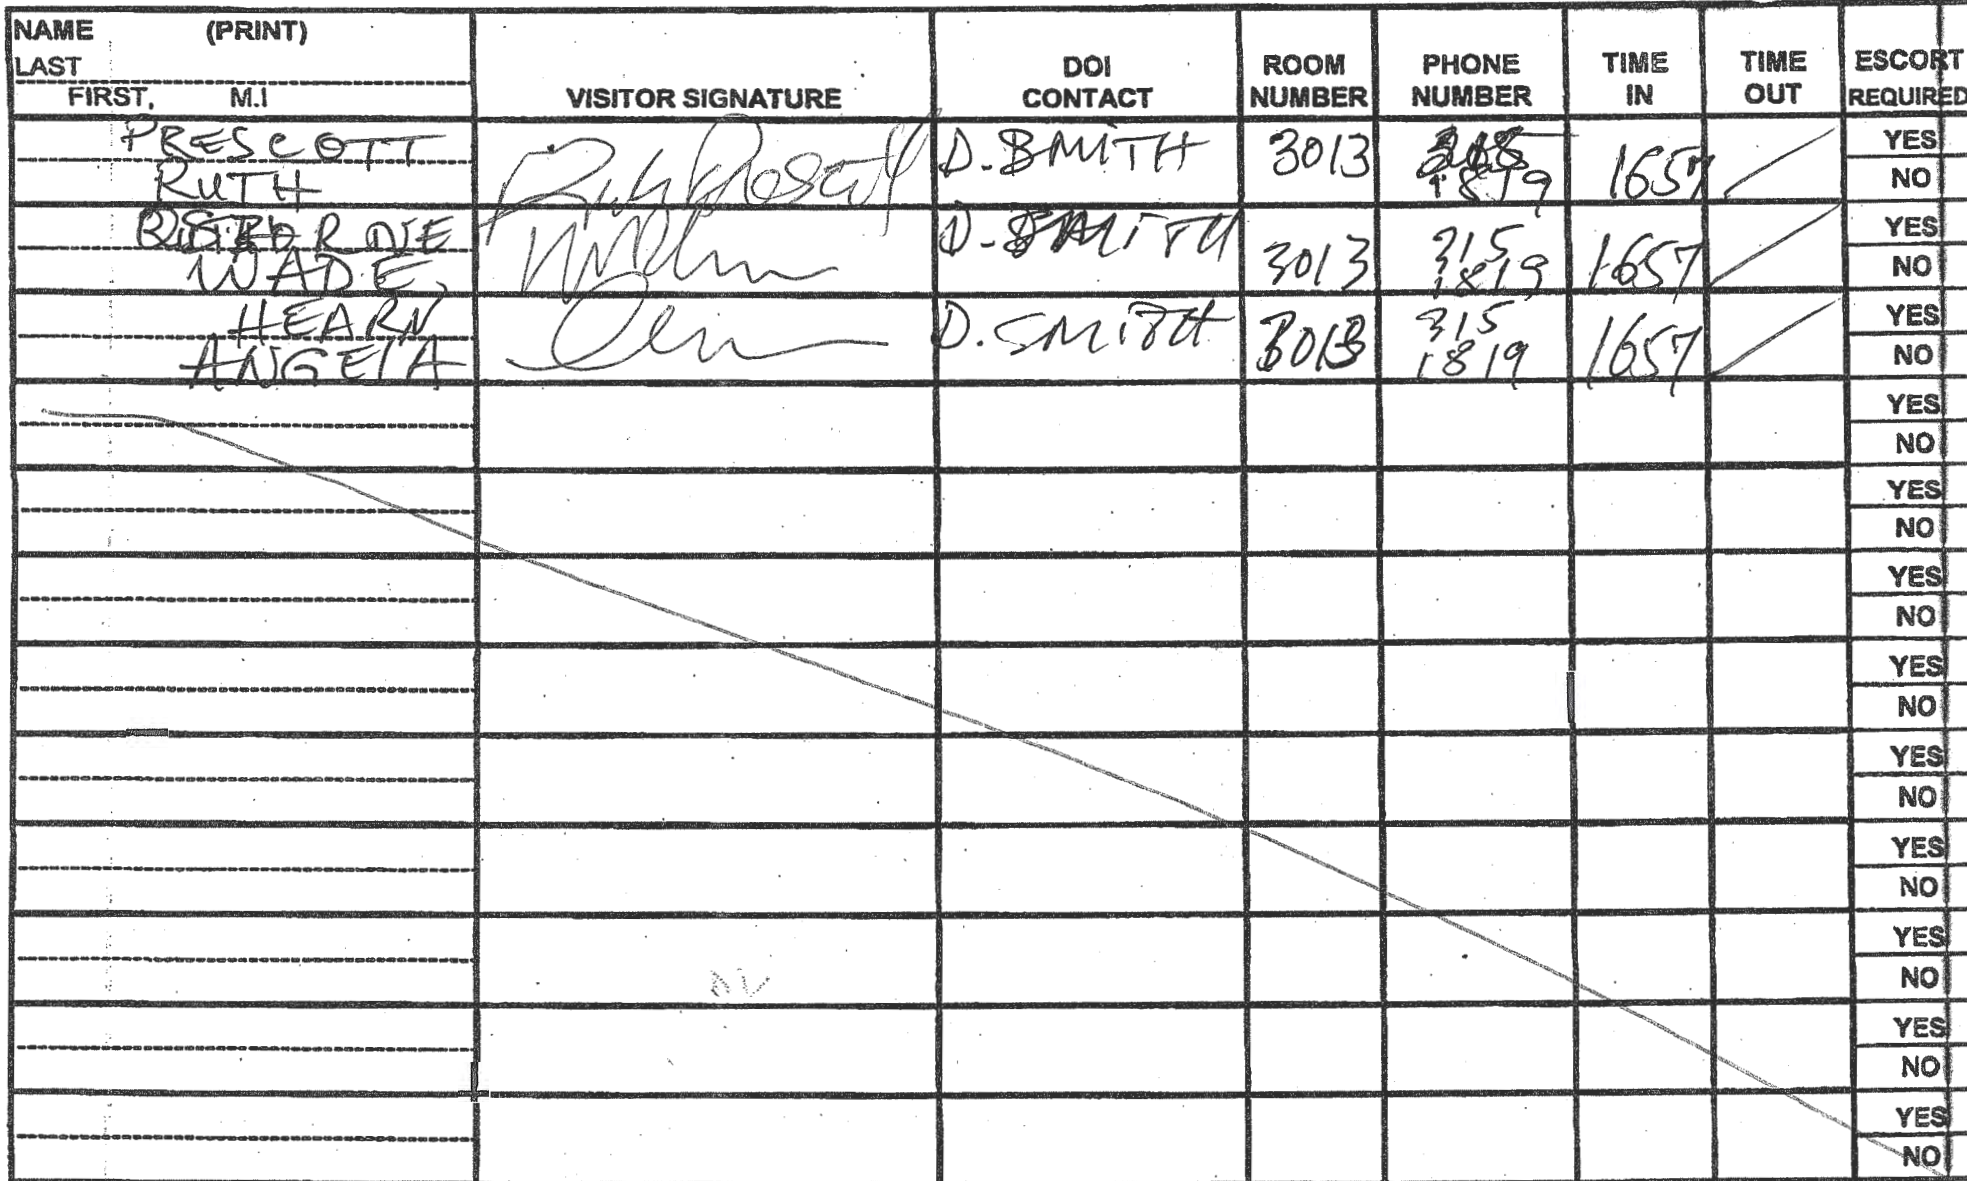 NAME (PRINT)
LAST
FIRST, M.I
VISITOR SIGNATURE
DOI CONTACT
ROOM NUMBER
PHONE NUMBER
TIME IN
TIME OUT
ESCORT REQUIRED
PRESCOTT
RUTH
Ruth Prescott
D. SMITH
3013
1819
1657
YES
NO
WADE,
D. SMITH
3013
315
1819
1657
YES
NO
HEARN
ANGELA
D. SMITH
3013
315
1819
1657
YES
NO
YES
NO
YES
NO
YES
NO
YES
NO
YES
NO
YES
NO
YES
NO
YES
NO
YES
NO